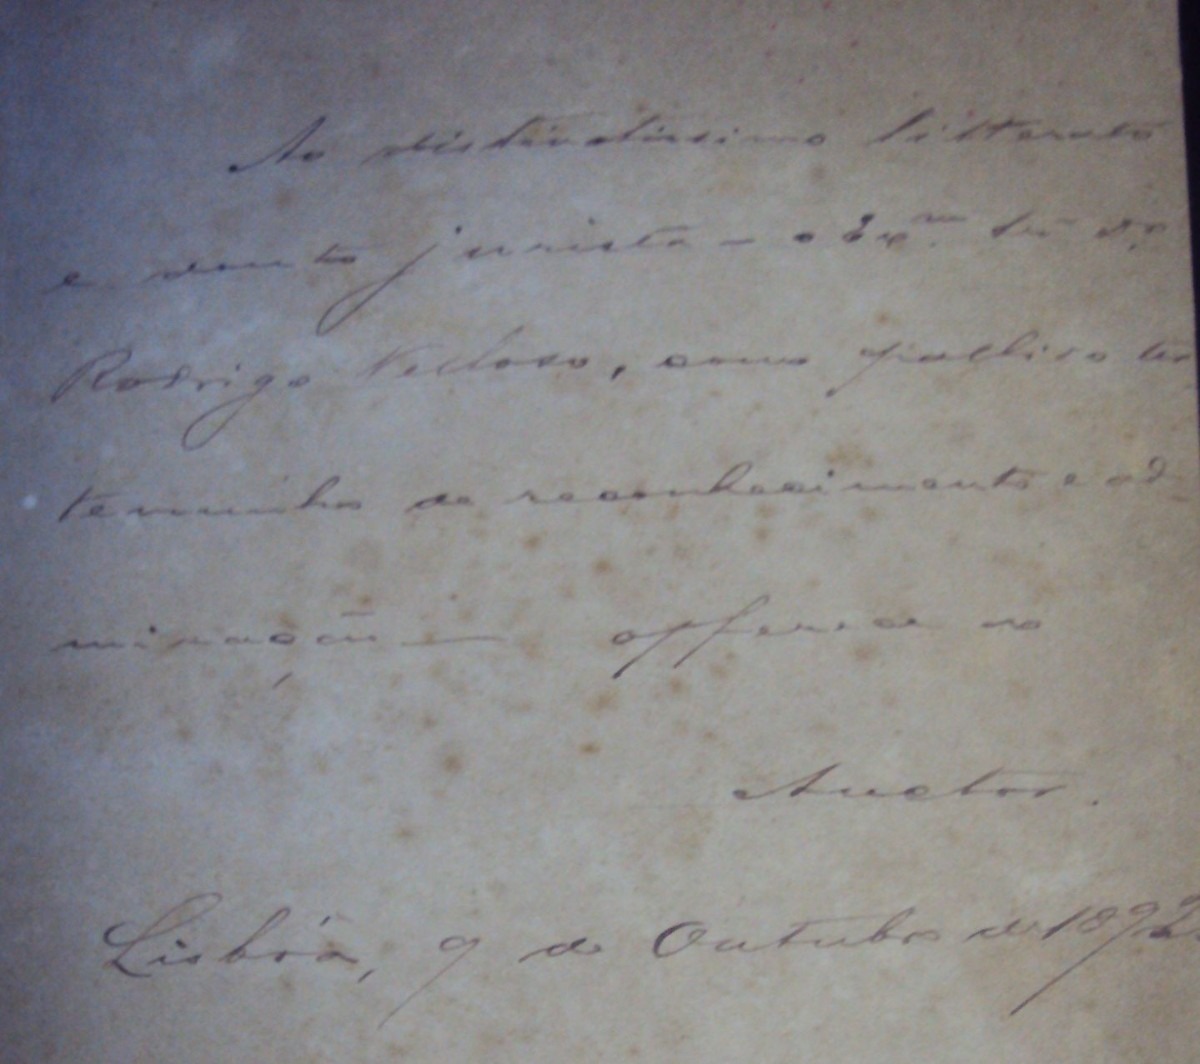 Ao distinctissimo litterato
e douto jurista - o Exmo. Sr. Dr.
Rodrigo Velloso, como pallido tes
temunho de reconhecimento e ad-
miração — offerece o
Auctor.
Lisbôa, 9 de Outubro de 1892